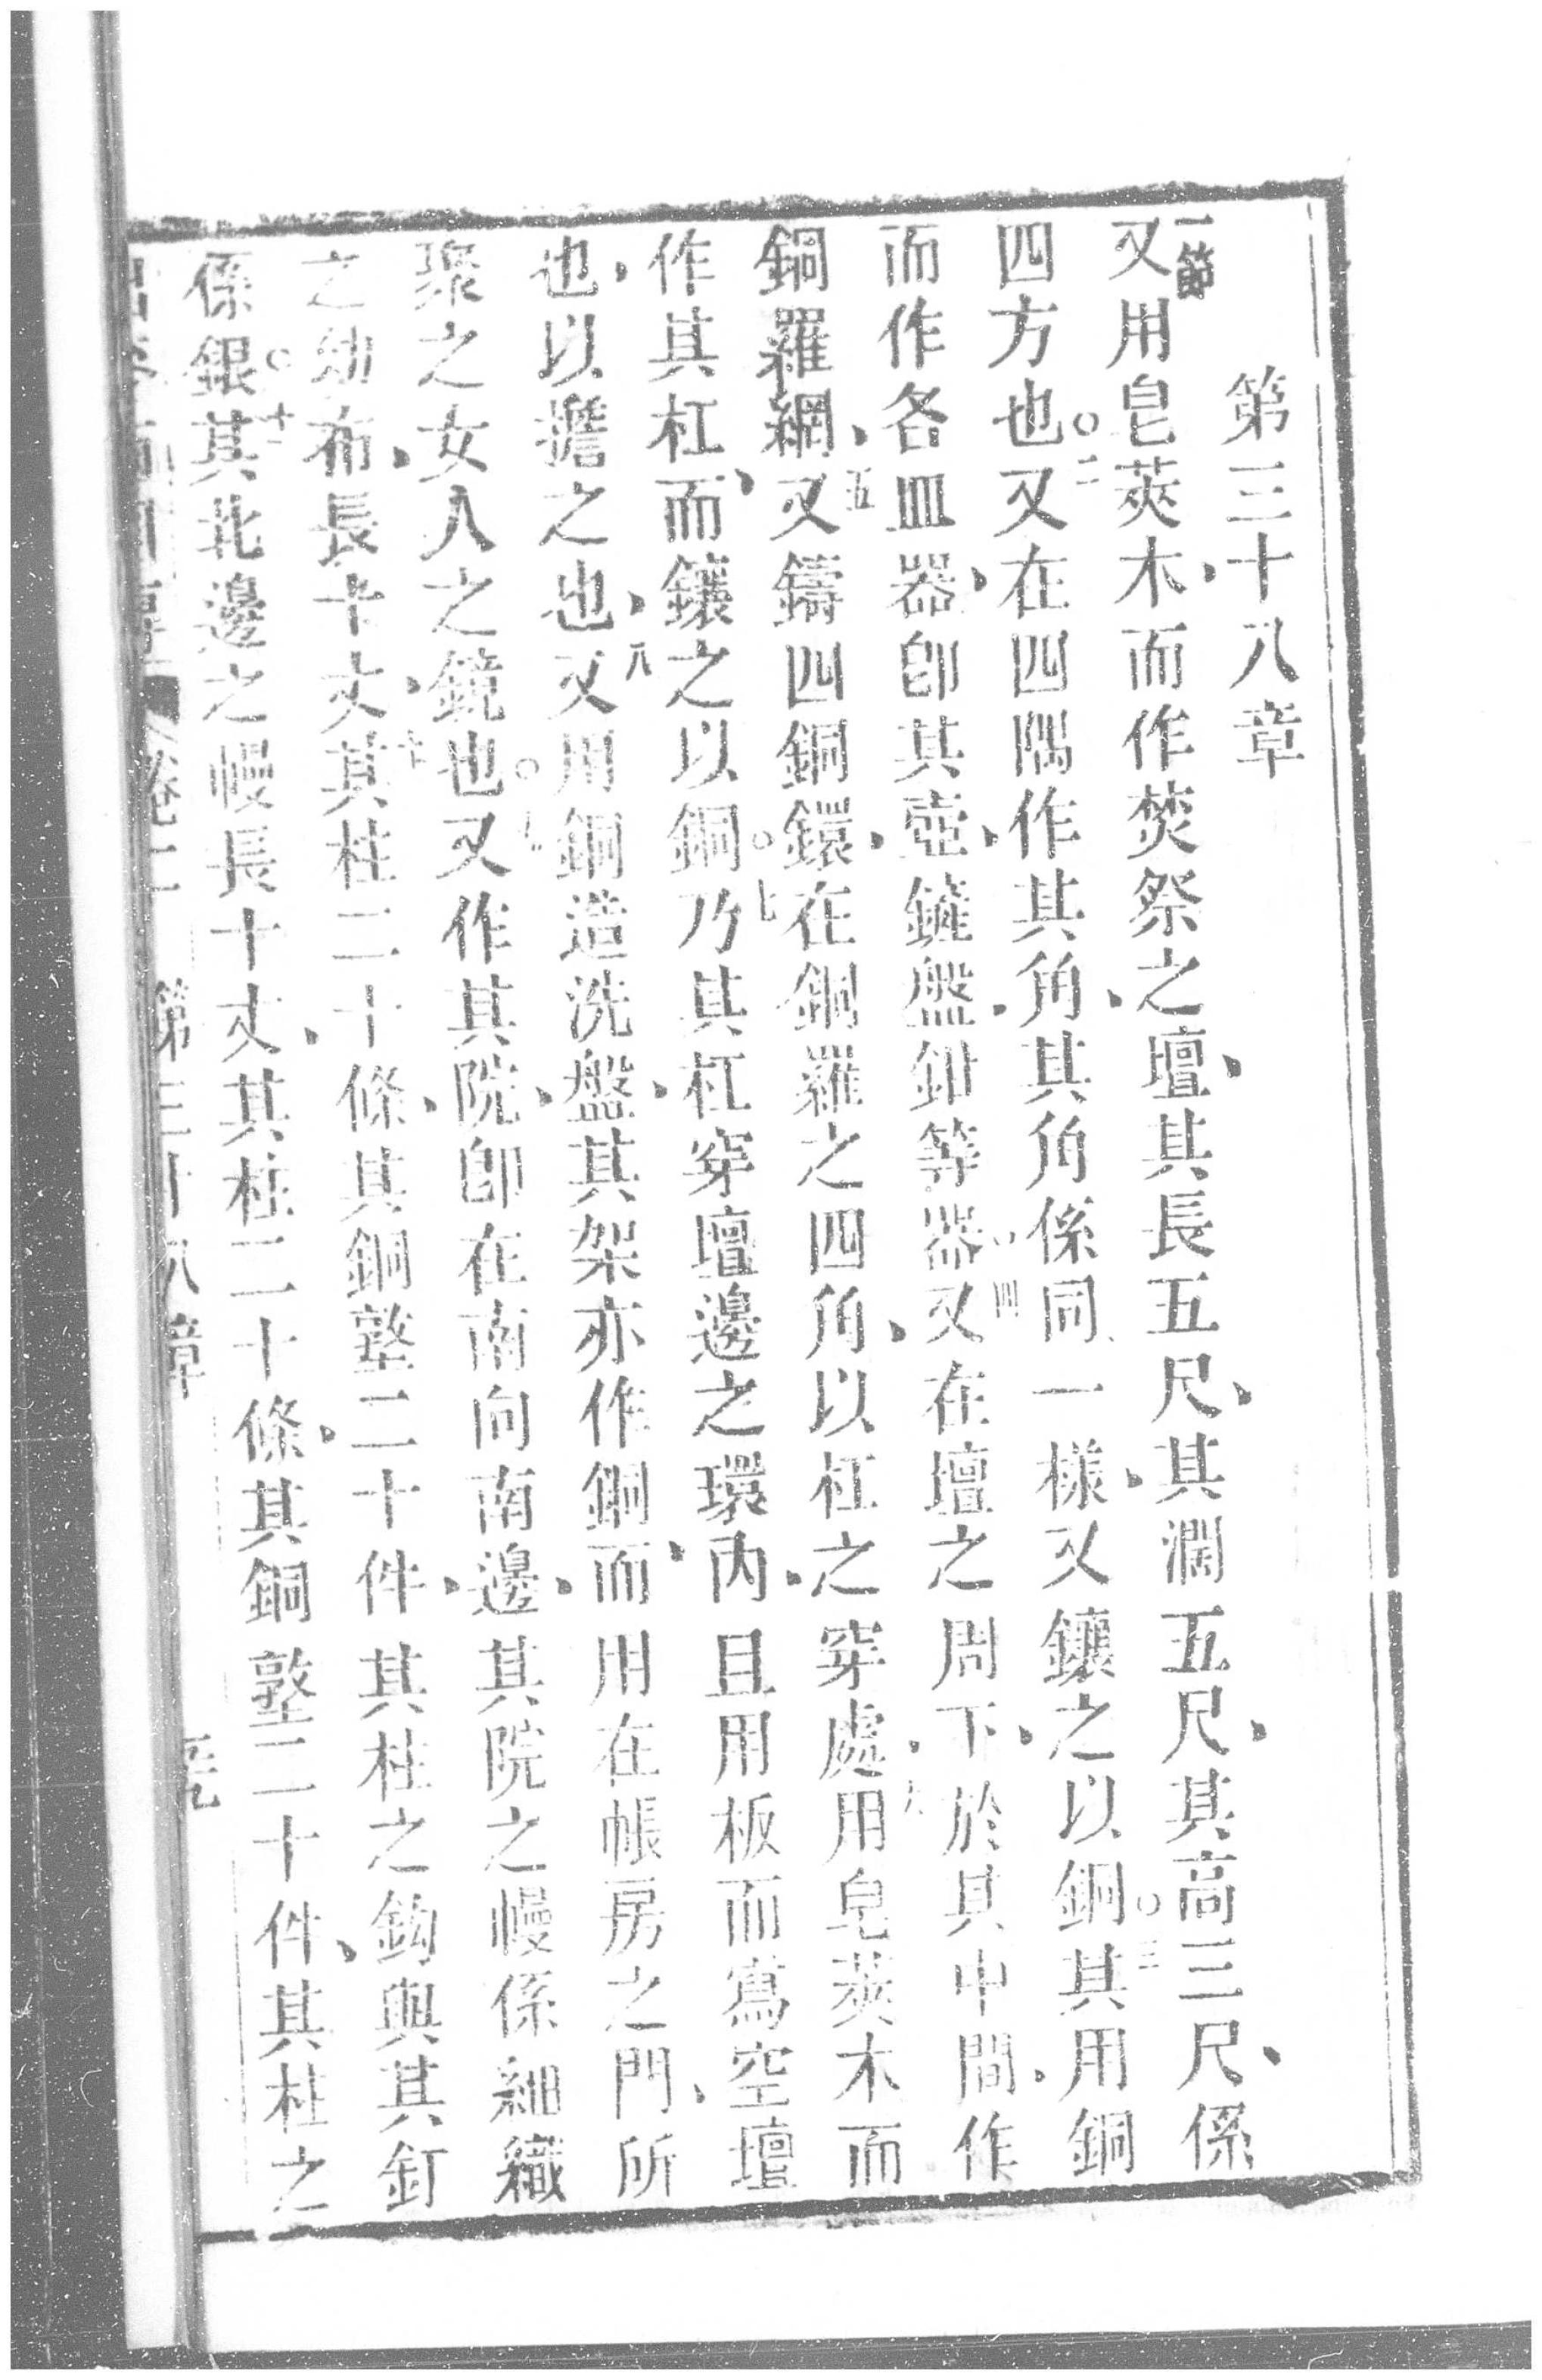 第三十八章
一節
又用皂莢木、而作焚祭之壇、其長五尺、其濶五尺、其高三尺、係
四方也。二又在四隅作其角、其角係同一樣、又鑲之以銅。三其用銅
而作各皿器、卽其壺、鏟盤、鉗等器、四又在壇之周下、於其中間、作
銅羅網、五又鑄四銅鐶、在銅羅之四角、以杠之穿處、六用皂莢木而
作其杠、而鑲之以銅。七乃其杠穿壇邊之環內、且用板而寫空壇
也、以擔之也、八又用銅造洗盤、其架亦作銅、而用在帳房之門、所
聚之女人之鏡也。九又作其院、卽在南向南邊、其院之幔係細織
之幼布、長十丈、十其柱二十條、其銅墪二十件、其柱之鈎與其釘
係銀。十一其北邊之幔長十丈、其柱二十條、其銅墪二十件、其柱之
卷二 第三十八章